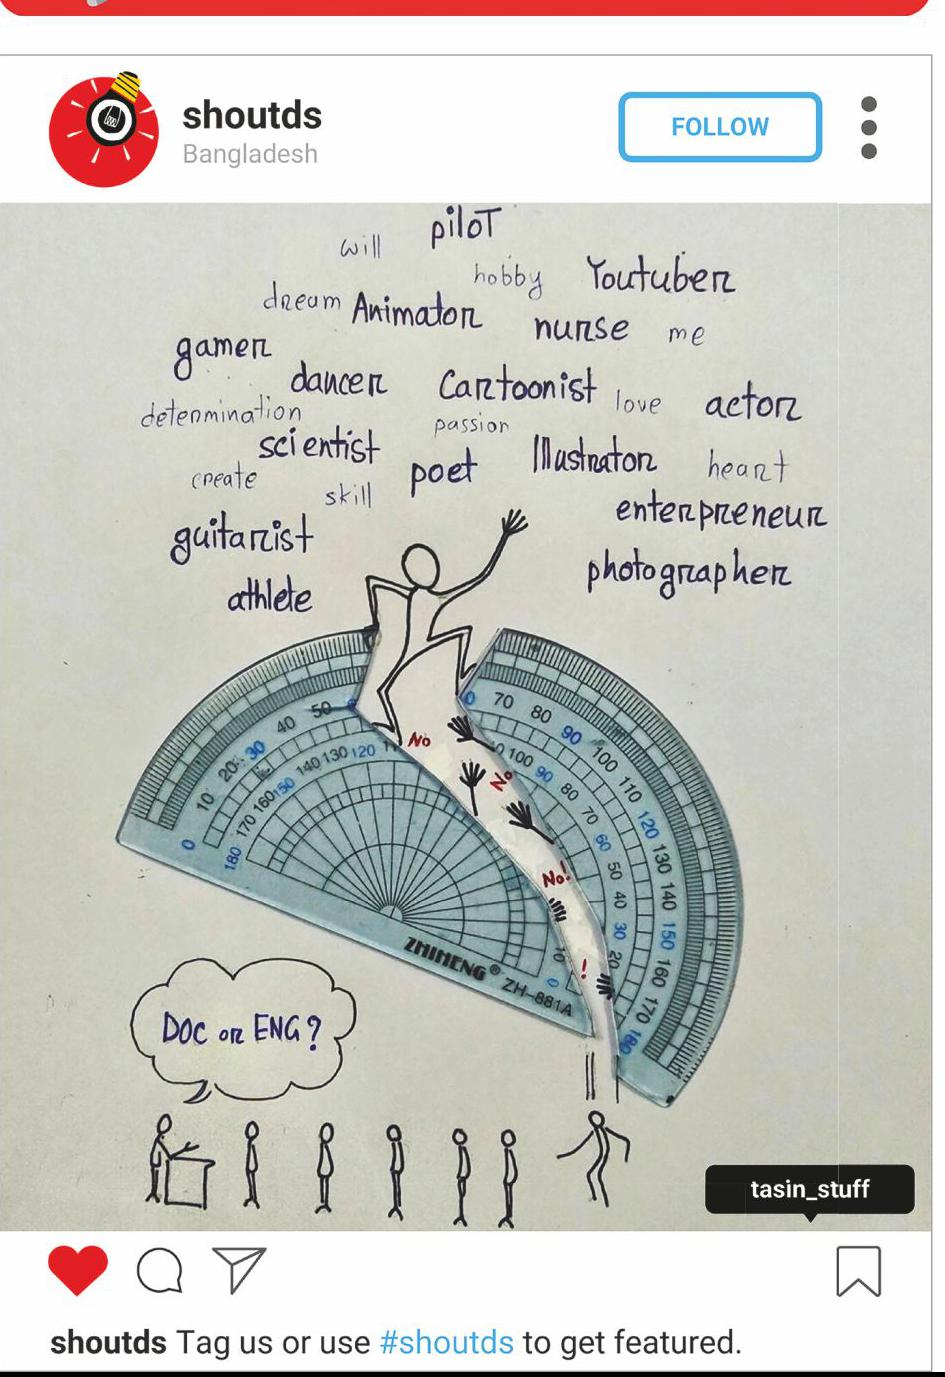 shoutds
Bangladesh
FOLLOW
will
piloT
hobby
Youtuber
dream
Animator
nurse
me
gamer
dancer
Cartoonist
love
actor
determination
passion
scientist
Illustrator
heart
create
poet
skill
enterpreneur
guitarist
photographer
athlete
0
10
20
30
40
50
180
170
160
150
140
130
120
70
80
90
100
110
120
130
140
150
160
170
180
100
90
80
70
60
50
40
30
20
10
0
No
No
No!
!
ZHIHENG®
ZH-881A
DOC or ENG?
tasin_stuff
shoutds Tag us or use #shoutds to get featured.